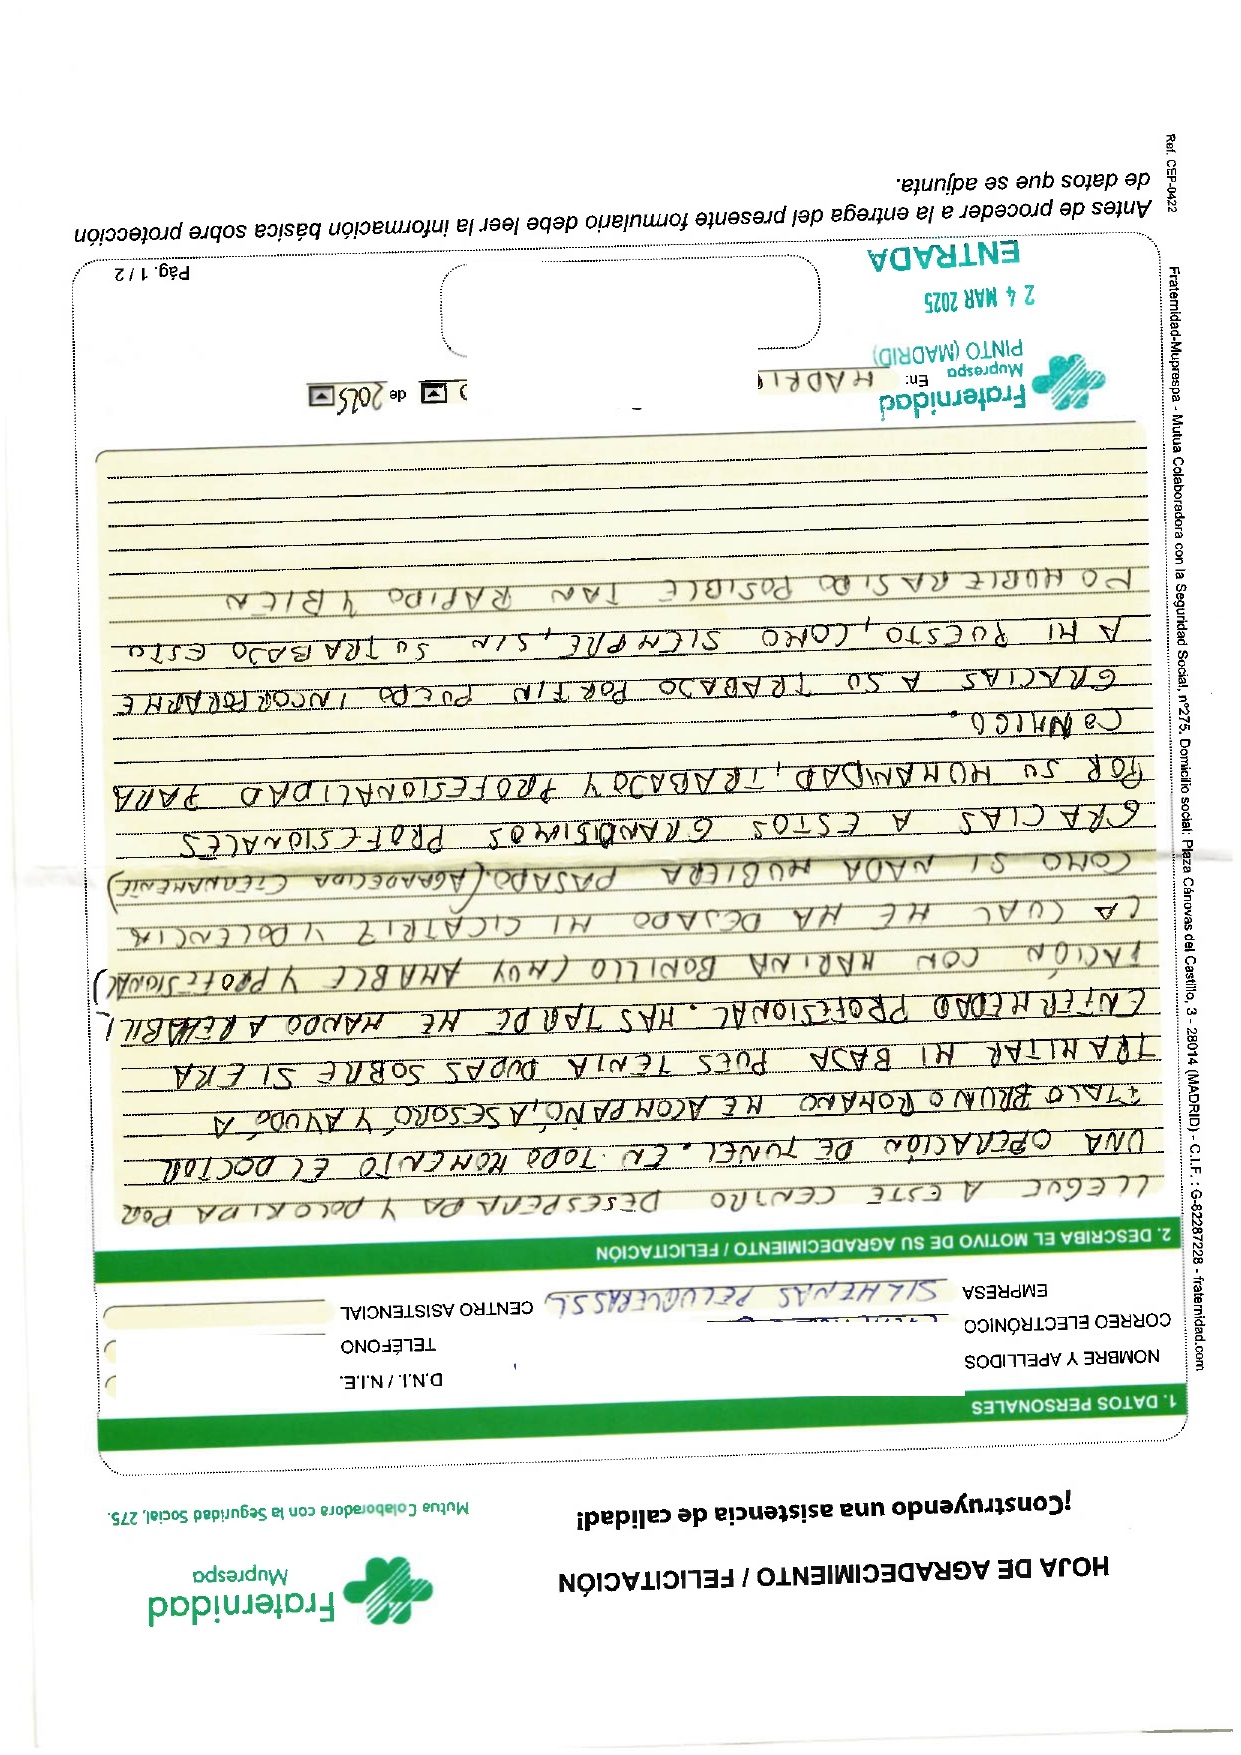 Fraternidad
Muprespa
Mutua Colaboradora con la Seguridad Social, 275.
HOJA DE AGRADECIMIENTO / FELICITACIÓN
¡Construyendo una asistencia de calidad!
1. DATOS PERSONALES
NOMBRE Y APELLIDOS
D.N.I. / N.I.E.
CORREO ELECTRÓNICO
TELÉFONO
EMPRESA SILHENAS PELUQUERAS SL CENTRO ASISTENCIAL
2. DESCRIBA EL MOTIVO DE SU AGRADECIMIENTO / FELICITACIÓN
LLEGUE A ESTE CENTRO DESESPERADA Y DOLORIDA POR
UNA OPERACIÓN DE TUNEL. EN TODO MOMENTO EL DOCTOR
ITALO BRUNO ROMANO ME ACOMPANÓ, ASESORÓ Y AYUDÓ A
TRAMITAR MI BAJA PUES TENIA DUDAS SOBRE SI ERA
ENFERMEDAD PROFESIONAL. MAS TARDE ME MANDO A REHABILI
TACIÓN CON MARINA BONILLO (MUY AMABLE Y PROFESIONAL)
LA CUAL ME HA DEJADO MI CICATRIZ Y DOLENCIA
COMO SI NADA HUBIERA PASADO. (AGRADECIDA ETERNAMENTE)
GRACIAS A ESTOS GRANDISIMOS PROFESIONALES
POR SU HUMANIDAD, TRABAJO Y PROFESIONALIDAD PARA
CONMIGO.
GRACIAS A SU TRABAJO POR FIN PUEDO INCORPORARME
A MI PUESTO, COMO SIEMPRE, SIN SU TRABAJO ESTO
NO HUBIERA SIDO POSIBLE TAN RAPIDO Y BIEN
Fraternidad
Muprespa
PINTO (MADRID)
24 MAR 2025
ENTRADA
En: MADRID
de 2025
Pág. 1 / 2
Antes de proceder a la entrega del presente formulario debe leer la información básica sobre protección
de datos que se adjunta.
Ref. CEP-0422
Fraternidad-Muprespa - Mutua Colaboradora con la Seguridad Social, nº275, Domicilio social: Plaza Cánovas del Castillo, 3 - 28014 (MADRID) - C.I.F. : G-82287228 - fraternidad.com